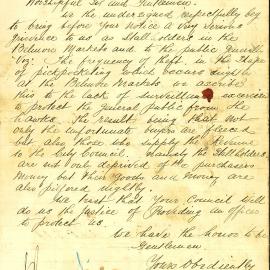 Worshipful Sir and Gentlemen
We the undersigned respectfully beg
to bring before your notice a very serious
grievance to us as Stall holders in the
Belmore Markets and to the public generally
Viz: The frequency of theft in the shape
of pickpocketing which occurs nightly
at the Belmore Markets we ascribe
this to the lack of surveillance exercised
to protect the general public from the
hawks. The result being that not
only the unfortunate buyers are fleeced
but also those who supply the Revenue
to the City Council. Namely the Stallholders
are not only deprived of the purchasers
money but their Goods and money are
also pilfered nightly.
We trust that your Council will
do us the Justice of Providing an officer
to protect us.
We have the honor to be
Gentlemen
Yours Obediently